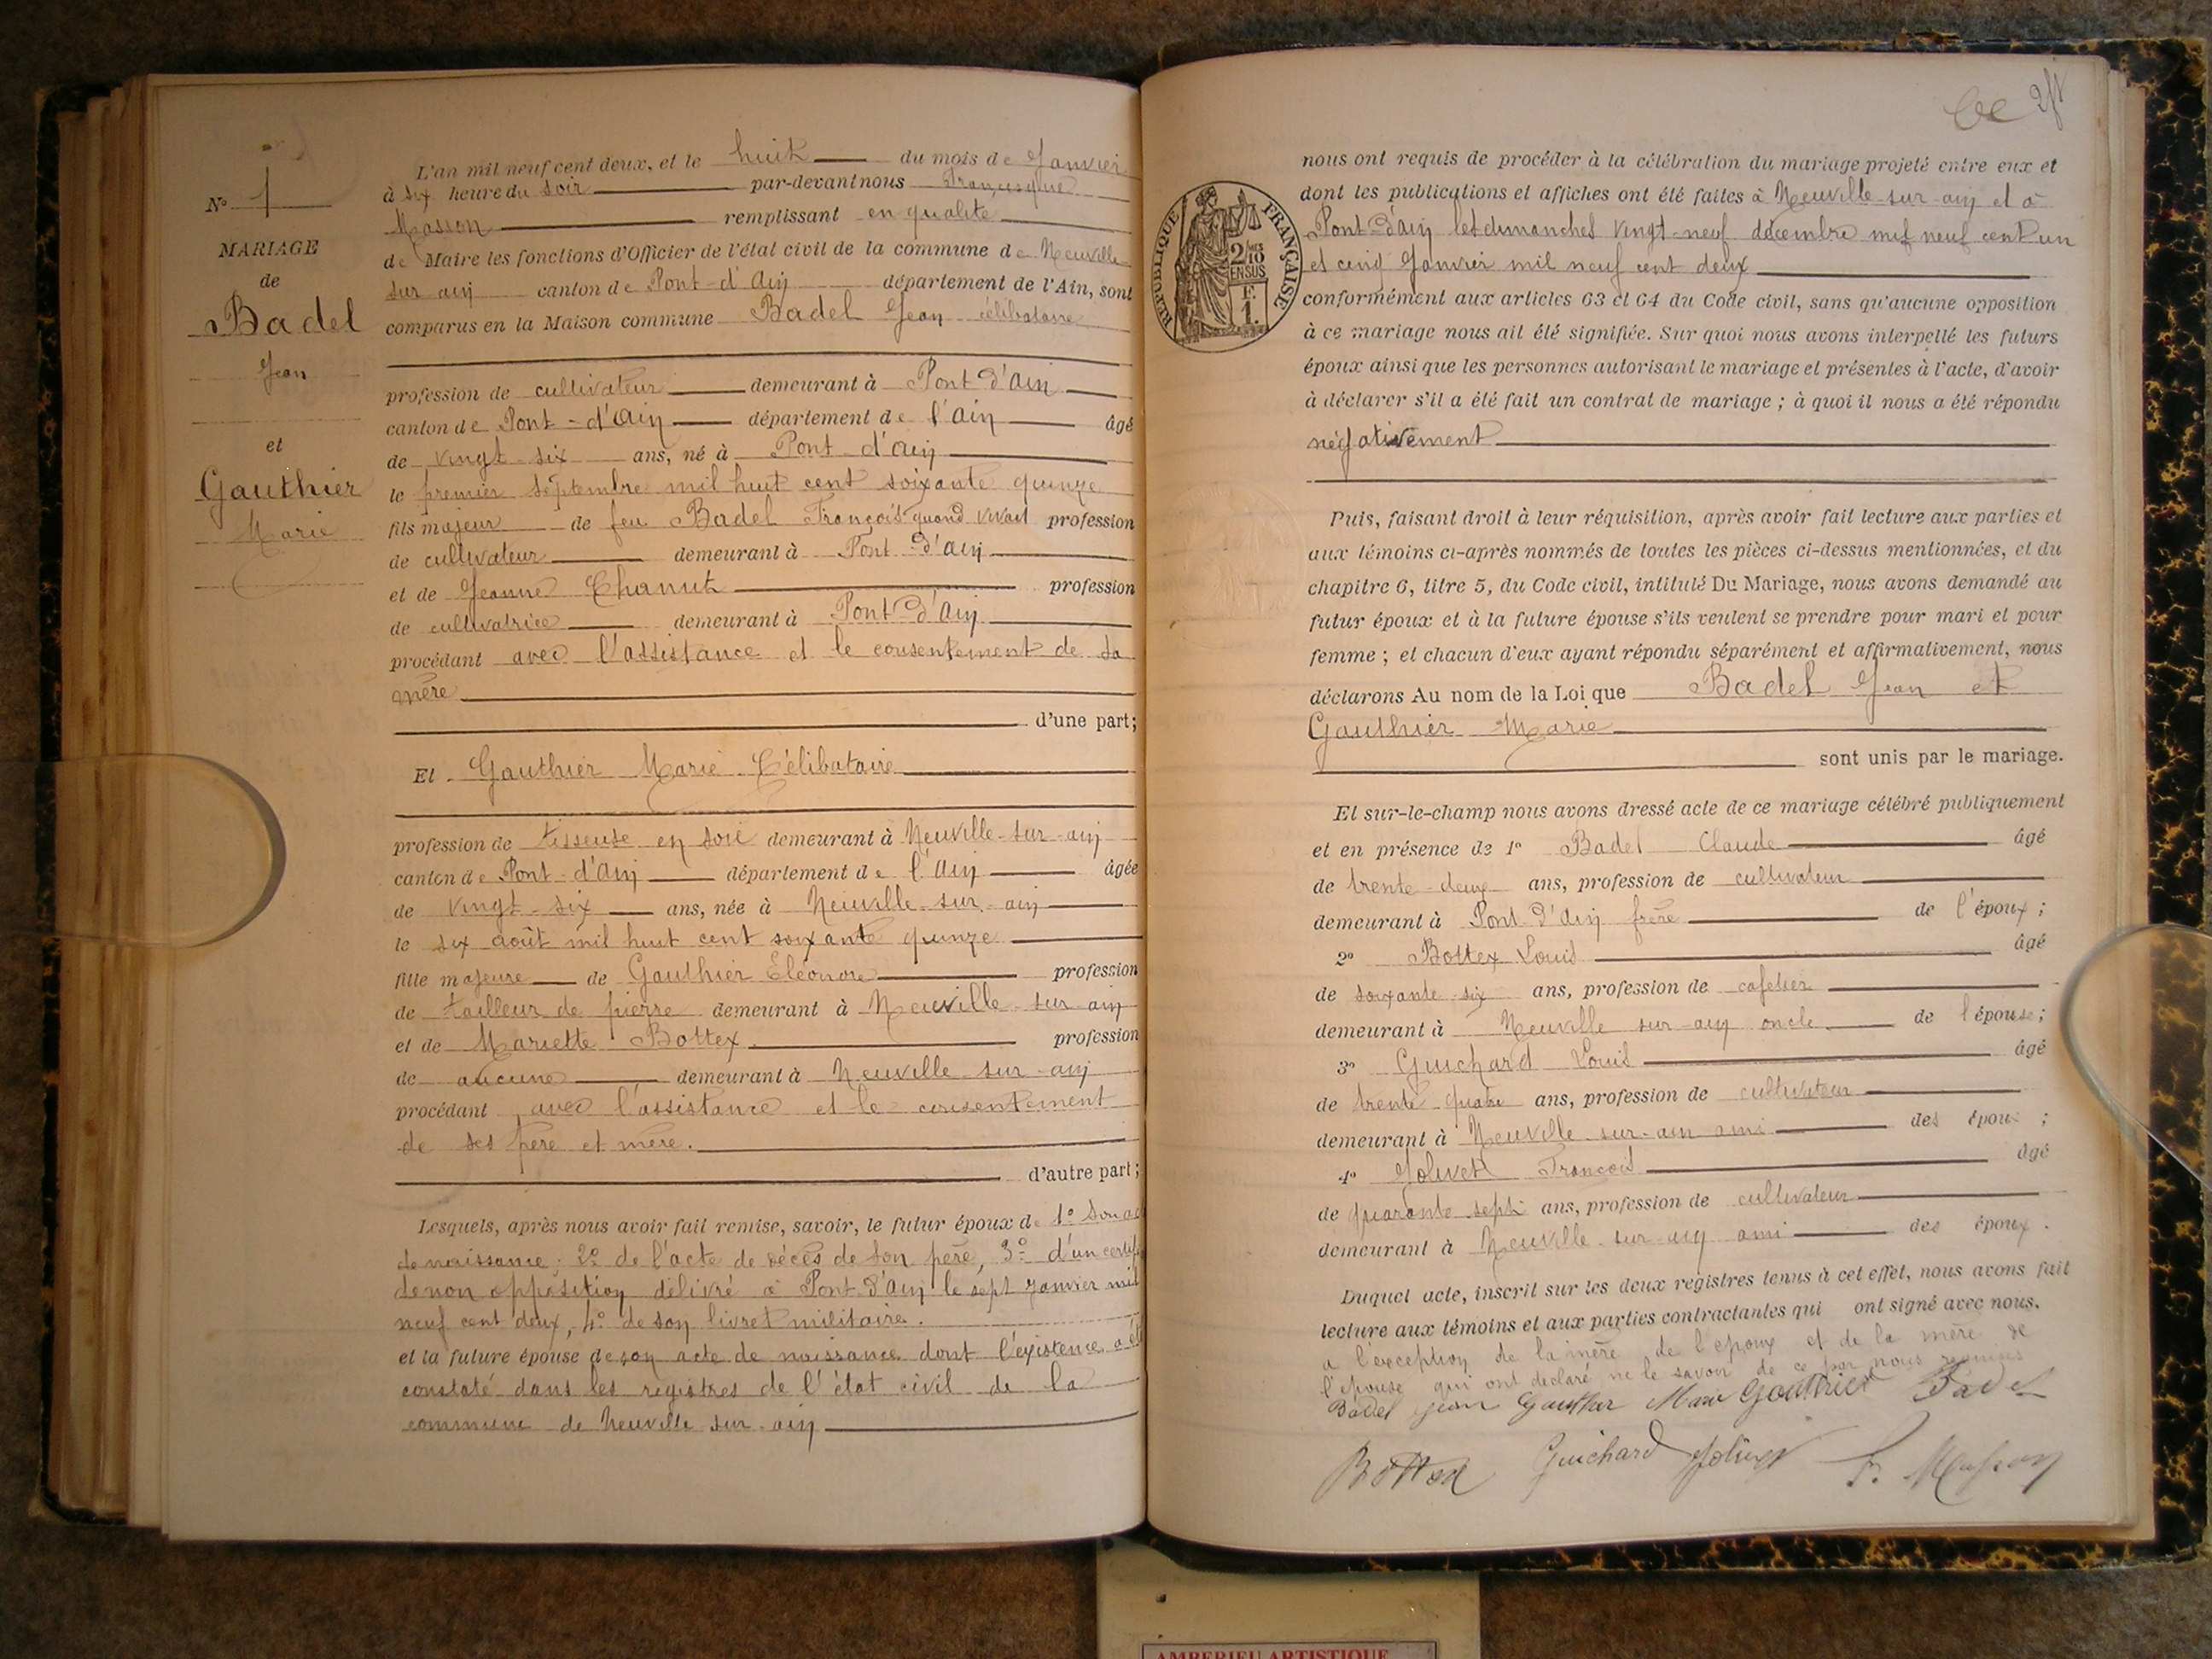 N° 1
MARIAGE
de
Badel
Jean
et
Gauthier
Marie
L'an mil neuf cent deux, et le huit du mois de Janvier
à six heure du soir par-devant nous Françisque
Masson remplissant en qualité
de Maire les fonctions d'Officier de l'état civil de la commune de Neuville
sur ain canton de Pont-d'Ain département de l'Ain, sont
comparus en la Maison commune Badel Jean célibataire
profession de cultivateur demeurant à Pont d'Ain
canton de Pont-d'Ain département de l'Ain âgé
de vingt-six ans, né à Pont-d'Ain
le premier Septembre mil huit cent soixante quinze
fils majeur de feu Badel François quand vivait profession
de cultivateur demeurant à Pont d'Ain
et de Jeanne Chanut profession
de cultivatrice demeurant à Pont d'Ain
procédant avec l'assistance et le consentement de sa
mère
d'une part;
Et Gauthier Marie Célibataire
profession de tisseuse en soie demeurant à Neuville-sur-ain
canton de Pont-d'Ain département de l'Ain âgée
de vingt-six ans, née à Neuville-sur-ain
le six août mil huit cent soixante quinze
fille majeure de Gauthier Eléonore profession
de tailleur de pierre demeurant à Neuville-sur-ain
et de Mariette Bottex profession
de aucune demeurant à Neuville-sur-ain
procédant avec l'assistance et le consentement
de ses père et mère.
d'autre part;
Lesquels, après nous avoir fait remise, savoir, le futur époux de 1° Son ac
de naissance; 2° de l'acte de décès de son père, 3° d'un certif
de non opposition délivré à Pont d'Ain le sept Janvier mil
neuf cent deux, 4° de son livret militaire.
et la future épouse de son acte de naissance dont l'existence a ét
constaté dans les registres de l'état civil de la
commune de Neuville sur-ain
RÉPUBLIQUE FRANÇAISE
2/10
EN SUS
F.
1.
nous ont requis de procéder à la célébration du mariage projeté entre eux et
dont les publications et affiches ont été faites à Neuville-sur-ain et à
Pont d'Ain les dimanches vingt-neuf décembre mil neuf cent un
et cinq Janvier mil neuf cent deux
conformément aux articles 63 et 64 du Code civil, sans qu'aucune opposition
à ce mariage nous ait été signifiée. Sur quoi nous avons interpellé les futurs
époux ainsi que les personnes autorisant le mariage et présentes à l'acte, d'avoir
à déclarer s'il a été fait un contrat de mariage; à quoi il nous a été répondu
négativement
Puis, faisant droit à leur réquisition, après avoir fait lecture aux parties et
aux témoins ci-après nommés de toutes les pièces ci-dessus mentionnées, et du
chapitre 6, titre 5, du Code civil, intitulé Du Mariage, nous avons demandé au
futur époux et à la future épouse s'ils veulent se prendre pour mari et pour
femme; et chacun d'eux ayant répondu séparément et affirmativement, nous
déclarons Au nom de la Loi que Badel Jean et
Gauthier Marie
sont unis par le mariage.
Et sur-le-champ nous avons dressé acte de ce mariage célébré publiquement
et en présence de 1° Badel Claude âgé
de trente-deux ans, profession de cultivateur
demeurant à Pont d'Ain frère de l'époux;
2° Bottex Louis âgé
de soixante-six ans, profession de cafetier
demeurant à Neuville sur-ain oncle de l'épouse;
3° Guichard Louis âgé
de trente-quatre ans, profession de cultivateur
demeurant à Neuville-sur-ain ami des époux;
4° Jolivet François âgé
de quarante-sept ans, profession de cultivateur
demeurant à Neuville-sur-ain ami des époux.
Duquel acte, inscrit sur les deux registres tenus à cet effet, nous avons fait
lecture aux témoins et aux parties contractantes qui ont signé avec nous.
a l'exception de la mère de l'époux et de la mère de
l'épouse qui ont déclaré ne le savoir de ce par nous requises
Badel Jean Gauthier Marie Gauthier Badel
Guichard Jolivet F. Masson
AMBERIEU ARTISTIQUE